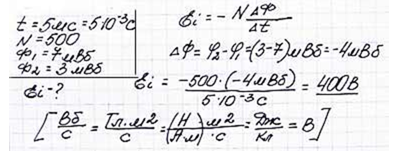 t = 5мс = 5·10⁻³с
N = 500
Ф₁ = 7мВб
Ф₂ = 3мВб
Ɛi - ?
Ɛi = - NΔФ/Δt
ΔФ = φ₂ - φ₁ = (3-7)мВб = -4мВб
Ɛi = -500·(-4мВб)/5·10⁻³с = 400В
[Вб/с = Тл·м2/с = (Н/А·м)м2/·с = Дж/Кл = В]